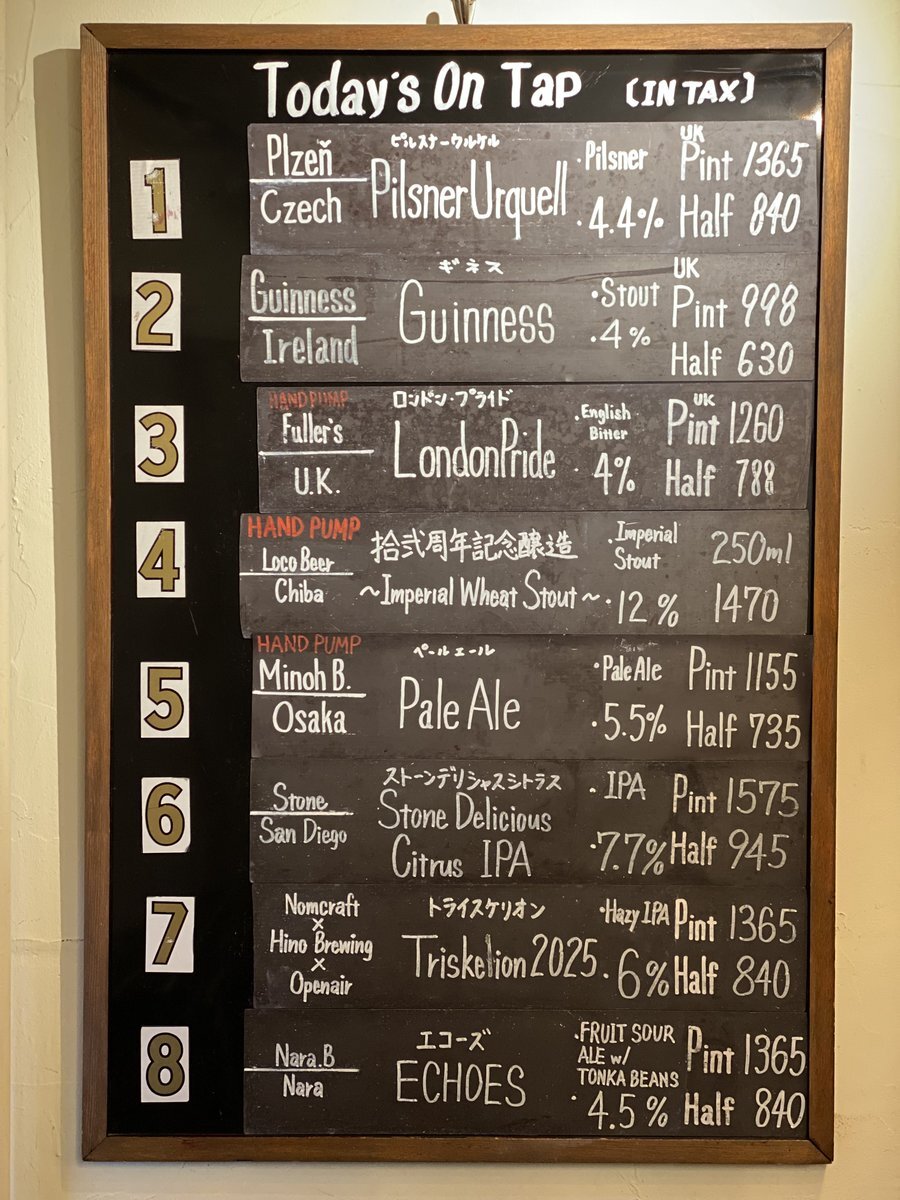 Today's On Tap (IN TAX)
1
Plzeň
Czech
ピルスナーウルケル
Pilsner Urquell
・Pilsner
・4.4%
UK
Pint 1365
Half 840
2
Guinness
Ireland
ギネス
Guinness
・Stout
・4%
UK
Pint 998
Half 630
3
HAND PUMP
Fuller's
U.K.
ロンドン・プライド
London Pride
・English
Bitter
・4%
UK
Pint 1260
Half 788
4
HAND PUMP
Loco Beer
Chiba
拾弐周年記念醸造
~Imperial Wheat Stout~
・Imperial
Stout
・12%
250ml
1470
5
HAND PUMP
Minoh B.
Osaka
ペールエール
Pale Ale
・Pale Ale
・5.5%
Pint 1155
Half 735
6
Stone
San Diego
ストーンデリシャスシトラス
Stone Delicious
Citrus IPA
・IPA
・7.7%
Pint 1575
Half 945
7
Nomcraft
×
Hino Brewing
×
Openair
トライスケリオン
Triskelion 2025
・Hazy IPA
・6%
Pint 1365
Half 840
8
Nara.B
Nara
エコーズ
ECHOES
・FRUIT SOUR
ALE w/
TONKA BEANS
・4.5%
Pint 1365
Half 840